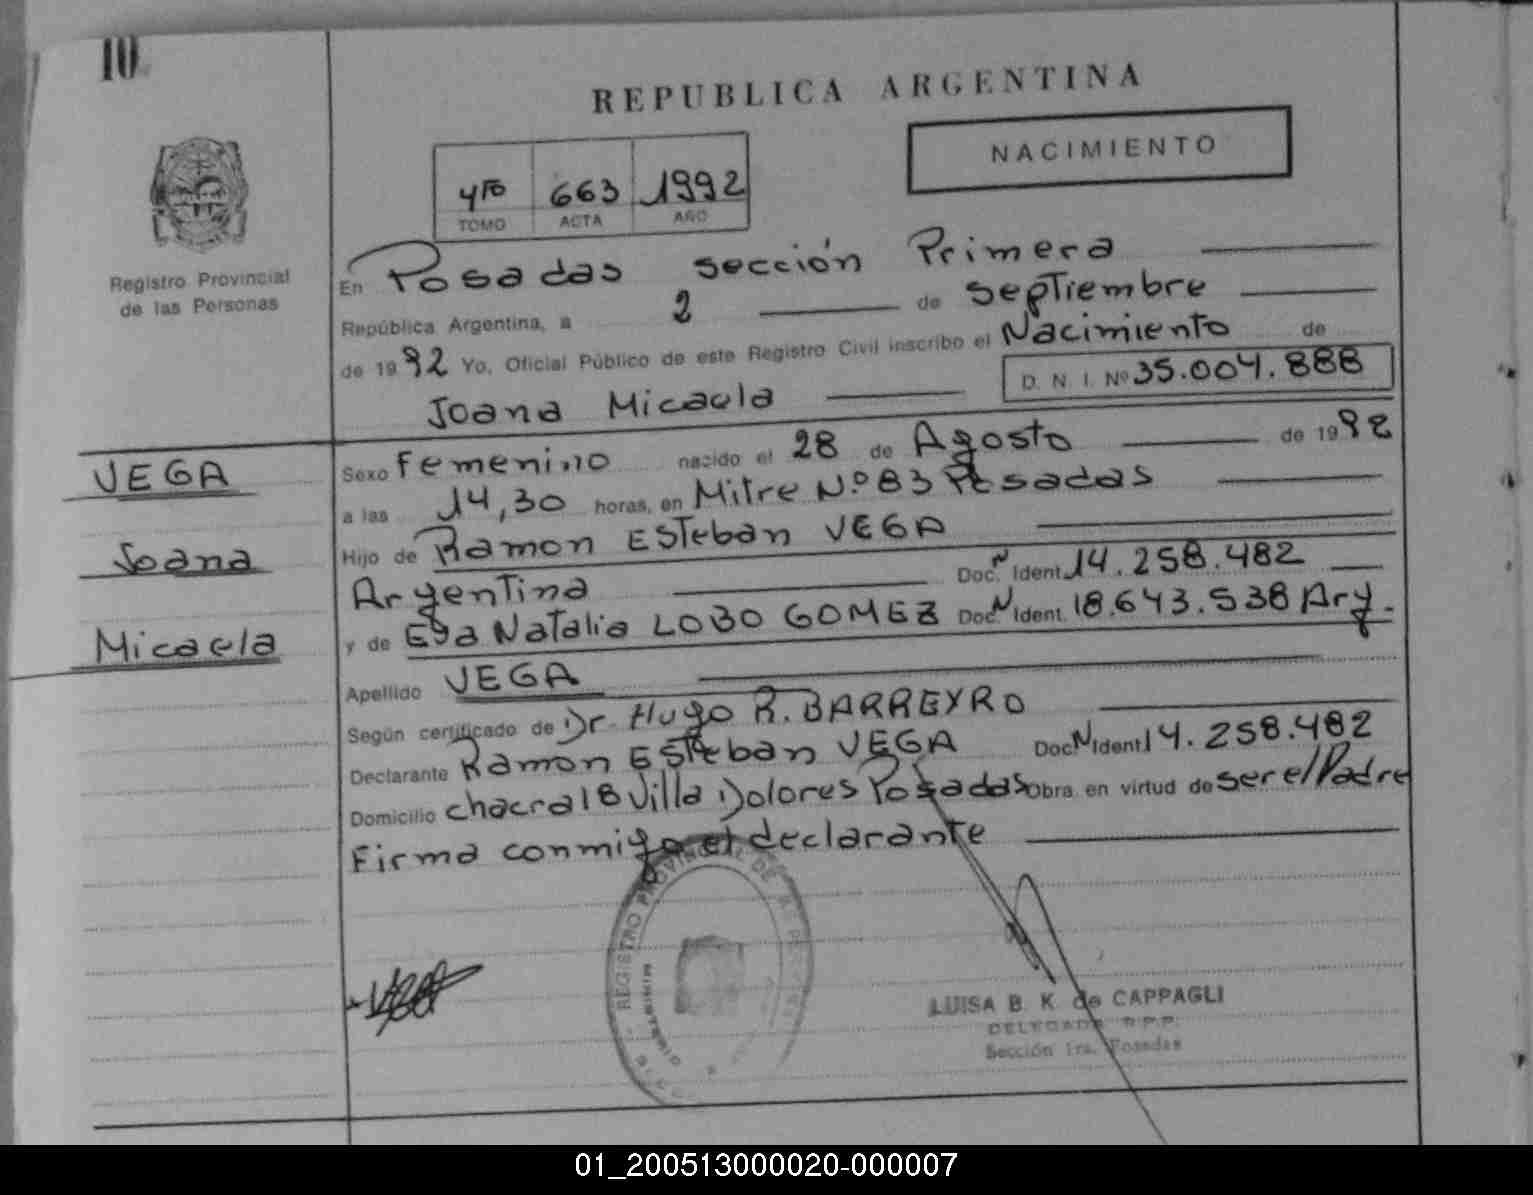 10
REPUBLICA ARGENTINA
NACIMIENTO
4to 663 1992
TOMO ACTA AÑO
Registro Provincial
de las Personas
En Posadas sección Primera
República Argentina, a 2 de Septiembre
de 1992 Yo, Oficial Público de este Registro Civil inscribo el Nacimiento de
Joana Micaela D. N. I. Nº 35.004.888
VEGA
Joana
Micaela
Sexo Femenino nacido el 28 de Agosto de 1992
a las 14,30 horas, en Mitre N.º 83 Posadas
Hijo de Ramon Esteban VEGA
Argentina Doc. N Ident. 14.258.482
y de Natalia LOBO GOMEZ Doc. N Ident. 18.643.538 Arg.
Apellido VEGA
Según certificado de Dr. Hugo R. BARREYRO
Declarante Ramon Esteban VEGA Doc N Ident. 14.258.482
Domicilio chacra 18 Villa Dolores Posadas Obra en virtud de ser el Padre
Firma conmigo el declarante
REGISTRO PROVINCIAL DE
MISIONES
LUISA B. K. de CAPPAGLI
DELEGADA R.P.P.
Sección 1ra. Posadas
01_200513000020-000007